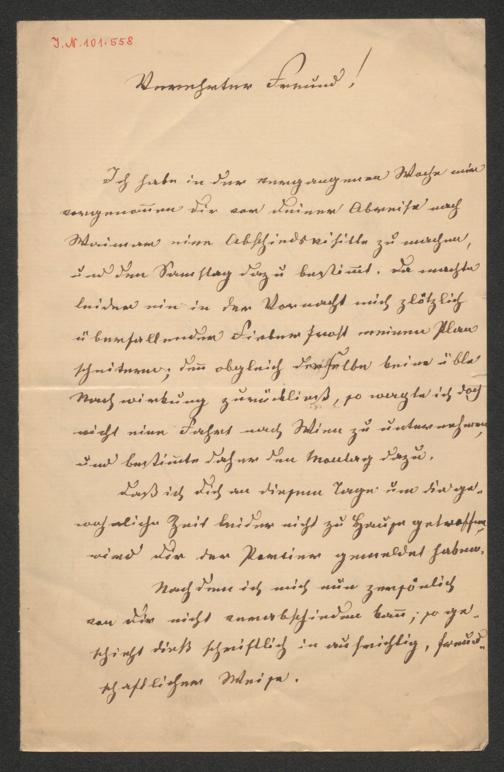 J.N. 101.558
Verehrter Freund!
Ich habe in der vergangenen Woche mir
vorgenommen dir vor deiner Abreise nach
Weimar eine Abschiedsvisitte zu machen,
und den Samstag dazu bestim̄t. Da machte
leider ein in der Vornacht mich plötzlich
überfallender Fieberfrost meinen Plan
scheitern; den̄ obgleich derselbe keine üble
Nachwirkung zurückließ, so wagte ich doch
nicht eine Fahrt nach Wien zu unternehmen,
und bestim̄te daher den Montag dazu.
Daß ich dich an diesem Tage um die ge-
wohnliche Zeit leider nicht zu Hause getroffen,
wird dir der Portier gemeldet haben.
Nachdem ich mich nun persönlich
von dir nicht verabschieden kan̄; so ge-
schieht dieß schriftlich in aufrichtig, freund-
schaftlicher Weise.